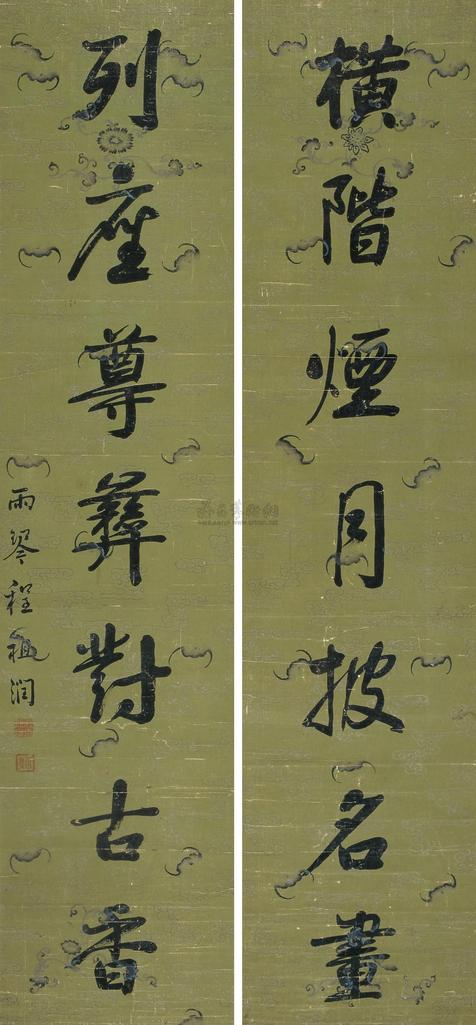 橫階煙月披名畫
列座尊彝對古香
雨琴程祖潤